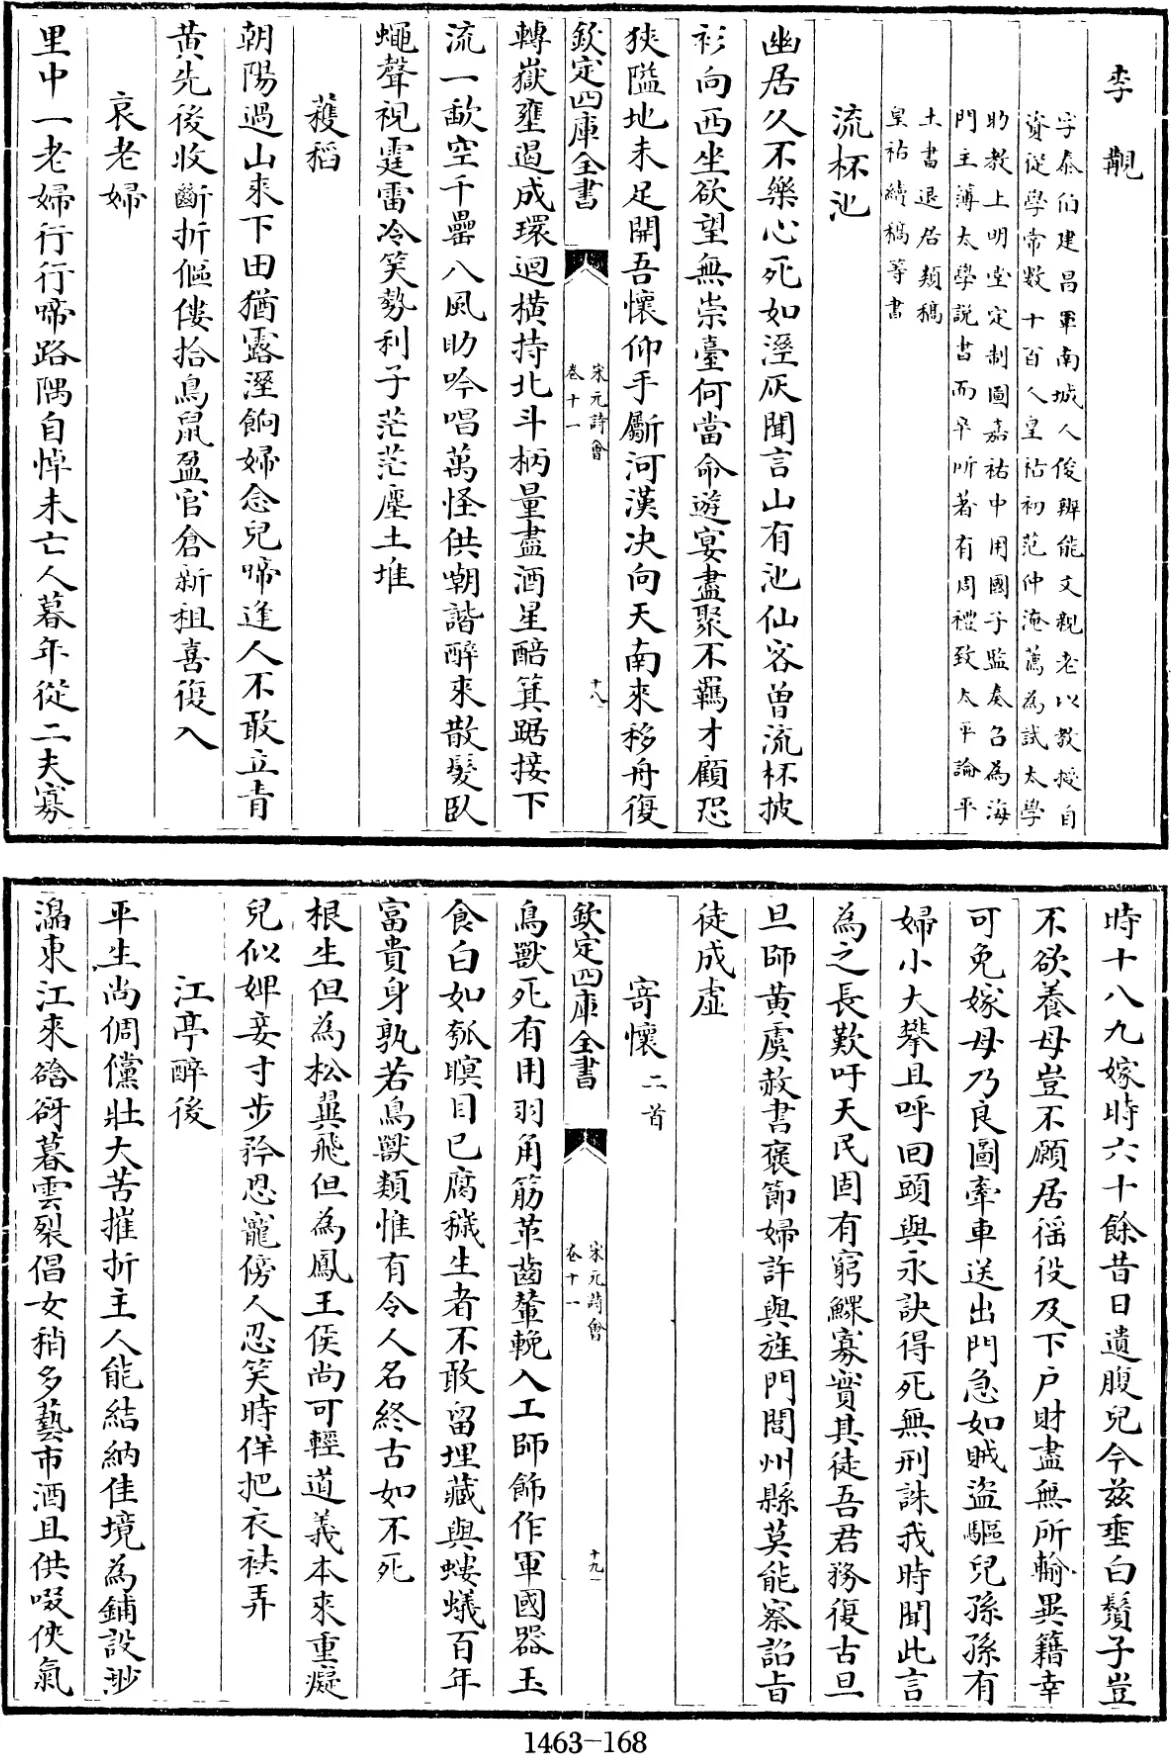 李覯
字泰伯建昌軍南城人俊辨能文親老以教授自
資從學常數十百人皇祐初范仲淹薦為試太學
助教上明堂定制圖嘉祐中用國子監奏召為海
門主簿太學說書而卒所著有周禮致太平論平
土書退居類稿
皇祐續稿等書
流杯池
幽居久不樂心死如溼灰聞言山有池仙客曾流杯披
衫向西坐欲望無崇臺何當命遊宴盡聚不羈才顧恐
狹隘地未足開吾懷仰手斸河漢决向天南來移舟復
欽定四庫全書
宋元詩會
卷十一
十八
轉嶽壅遏成環迴橫持北斗柄量盡酒星醅箕踞接下
流一歃空千罍八風助吟唱萬怪供嘲諧醉來散髮臥
蠅聲視霆雷冷笑勢利子茫茫塵土堆
穫稻
朝陽過山來下田猶露溼餉婦念兒啼逢人不敢立青
黃先後收斷折傴僂拾鳥鼠盈官倉新租喜復入
哀老婦
里中一老婦行行啼路隅自悼未亡人暮年從二夫寡
時十八九嫁時六十餘昔日遺腹兒今茲垂白鬚子豈
不欲養母豈不顧居徭役及下户財盡無所輸異籍幸
可免嫁母乃良圖牽車送出門急如賊盜驅兒孫孫有
婦小大攀且呼回頭與永訣得死無刑誅我時聞此言
為之長歎吁天民固有窮鰥寡實其徒吾君務復古旦
旦師黃虞赦書褒節婦許與旌門閭州縣莫能察詔旨
徒成虛
寄懷二首
欽定四庫全書
宋元詩會
卷十一
十九
鳥獸死有用羽角筋革齒輦輓入工師飾作軍國器玉
食白如瓠瞑目已腐穢生者不敢留埋藏與螻蟻百年
富貴身孰若鳥獸類惟有令人名終古如不死
根生但為松異飛但為鳳王侯尚可輕道義本來重癡
兒似婢妾寸步矜恩寵傍人忍笑時佯把衣袪弄
江亭醉後
平生尚倜儻壯大苦摧折主人能結納佳境為鋪設渺
㶚東江來谽谺暮雲裂倡女稍多藝市酒且供啜俠氣
1463-168